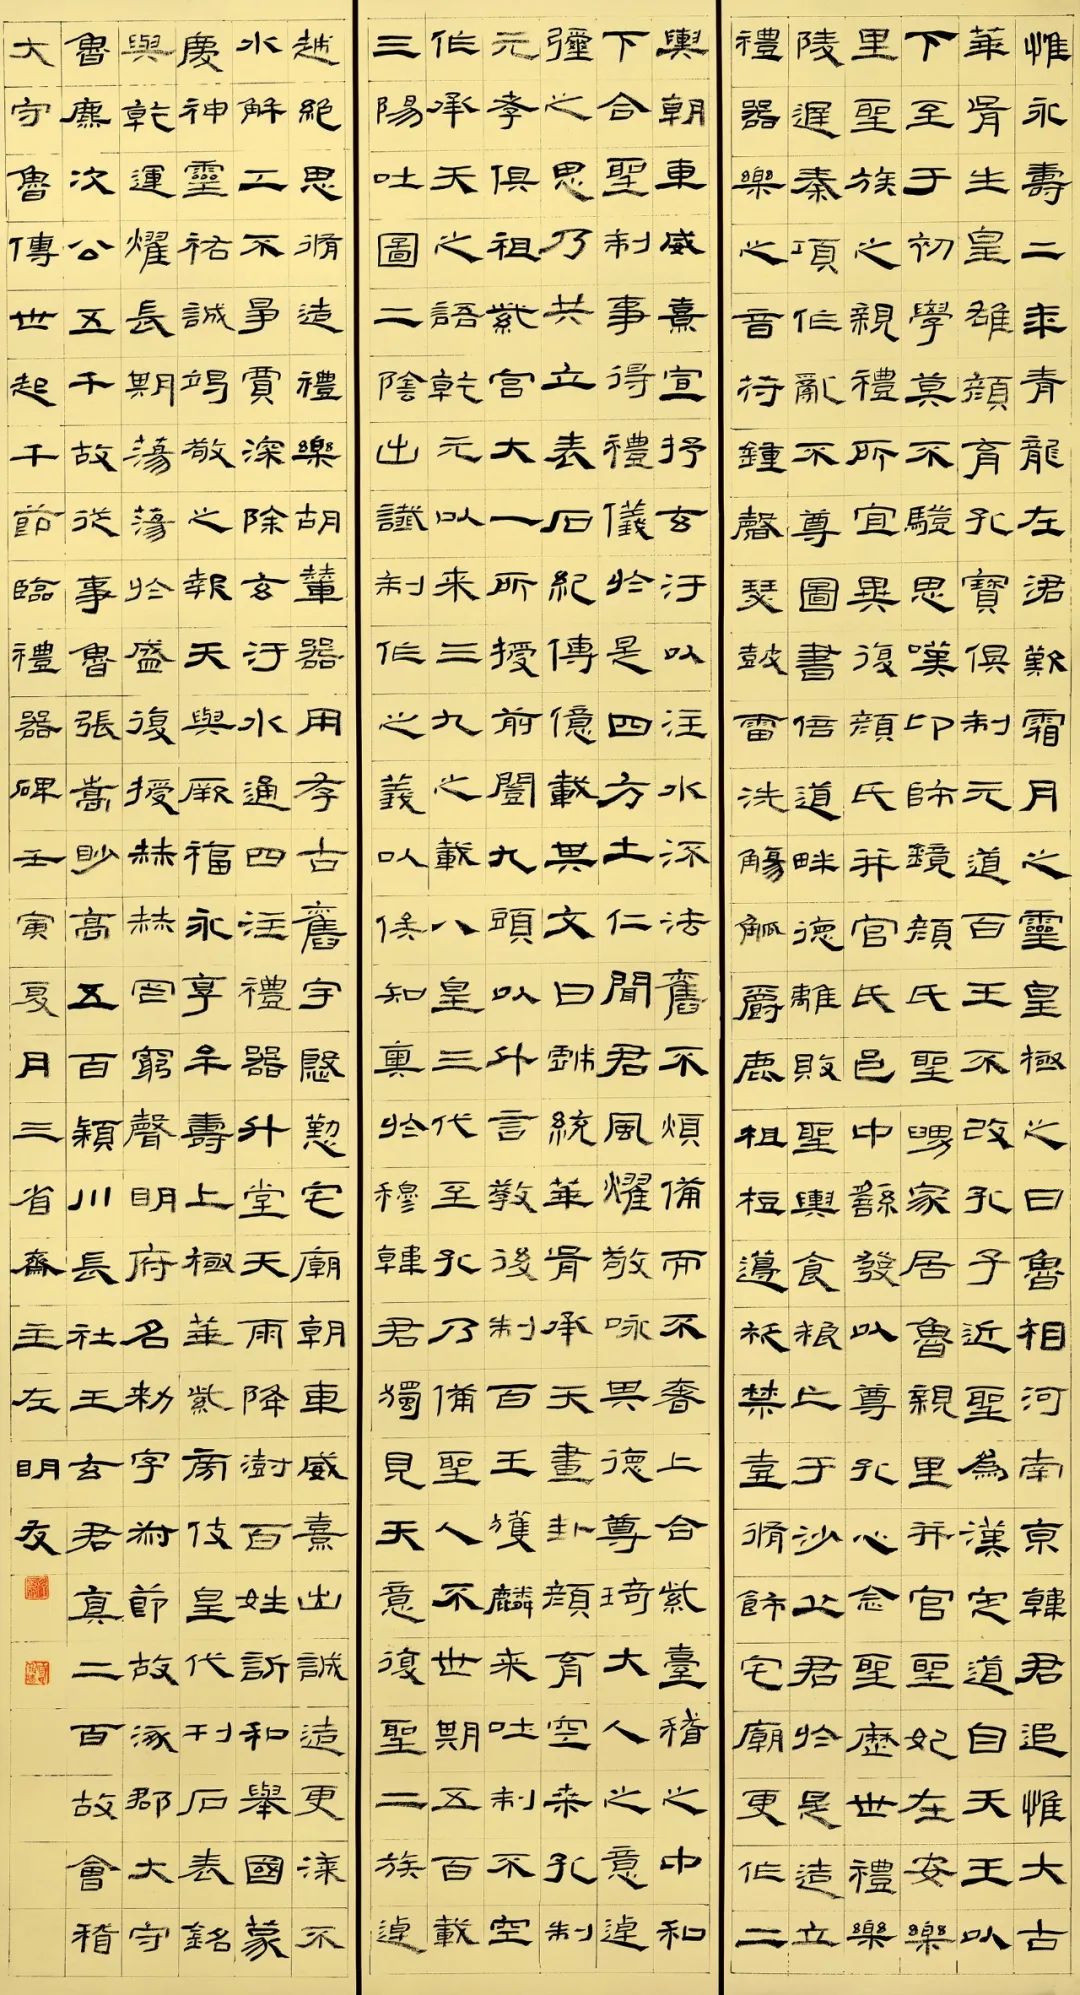 惟永壽二年青龍在涒歎霜月之靈皇極之日魯相河南京韓君追惟大古
華胥生皇雄顏育孔寶俱制元道百王不改孔子近聖為漢定道自天王以
下至于初學莫不驥思嘆卬師鏡顏氏聖舅家居魯親里并官聖妃在安樂
里聖族之親禮所宜異復顏氏并官氏邑中繇發以尊孔心念聖歷世禮樂
陵遲秦項作亂不尊圖書倍道畔德離敗聖輿食粮亡于沙丘君於是造立
禮器樂之音苻鍾磬瑟鼓雷洗觴觚爵鹿柤梪籩柉禁壺脩飾宅廟更作二
輿朝車威熹宣抒玄汙以注水流法舊不煩備而不奢上合紫臺稽之中和
下合聖制事得禮儀於是四方土仁聞君風燿敬咏其德尊琦大人之意逴
彌之思乃共立表石紀傳億載其文曰戲統華胥承天畫卦顏育空桑孔制
元孝俱祖紫宮大一所授前闓九頭以升言教後制百王獲麟來吐制不空
作承天之語乾元以來三九之載八皇三代至孔乃備聖人不世期五百載
三陽吐圖二陰出讖制作之義以俟知奧於穆韓君獨見天意復聖二族逴
越絕思脩造禮樂胡輦器用存古舊宇慇懃宅廟朝車威熹出誠造更漆不
水解工不爭賈深除玄汙水通四注禮器升堂天雨降澍百姓訢和舉國蒙
慶神靈祐誠竭敬之報天與厥福永享牟壽上極華紫旁伎皇代刊石表銘
與乾運燿長期蕩蕩於盛復授赫赫罔窮聲明府名勑字叔節故涿郡大守
魯麃次公五千故從事魯張嵩眇高五百潁川長社王玄君真二百故會稽
大守魯傅世起千節臨禮器碑壬寅夏月三省齋主左明友